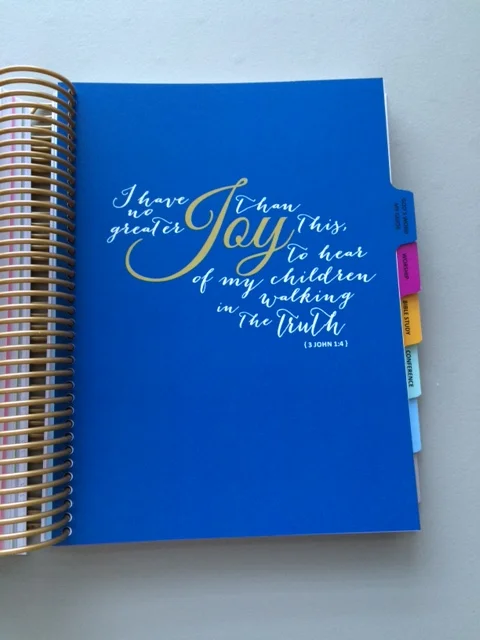 I have
no
greater
Joy
than
this,
to hear
of my children
walking
in the truth
{ 3 JOHN 1:4 }
WORSHIP
BIBLE STUDY
CONFERENCE